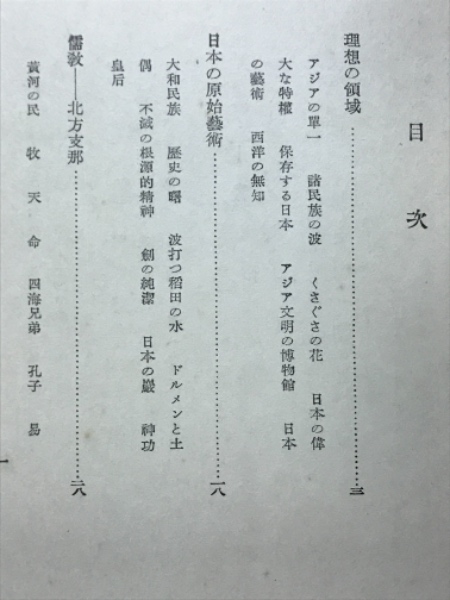 目次
理想の領域……………………三
アジアの單一　諸民族の波　くさぐさの花　日本の偉
大な特權　保存する日本　アジア文明の博物館　日本
の藝術　西洋の無知
日本の原始藝術……………………一八
大和民族　歷史の曙　波打つ稻田の水　ドルメンと土
偶　不滅の根源的精神　劍の純潔　日本の巖　神功
皇后
儒敎——北方支那……………………二八
黃河の民　牧　天　命　四海兄弟　孔子　易
一